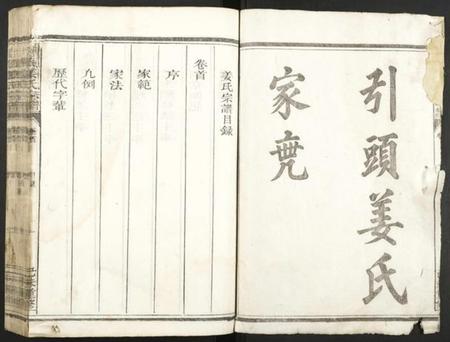 引頭姜氏
家乘
姜氏宗譜目録
卷首
序
家範
家法
凡例
歷代字輩